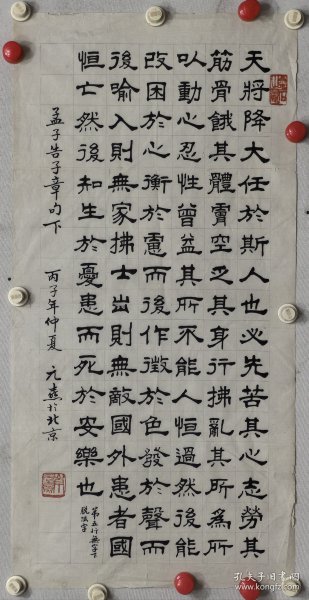 天將降大任於斯人也必先苦其心志勞其
筋骨餓其體膚空乏其身行拂亂其所為所
以動心忍性曾益其所不能人恒過然後能
改困於心衡於慮而後作徵於色發於聲而
後喻入則無家拂士出則無敵國外患者國
恒亡然後知生於憂患而死於安樂也
第五行無字下
脫法字
孟子告子章句下 丙子年仲夏 元於北京
孔夫子旧书网